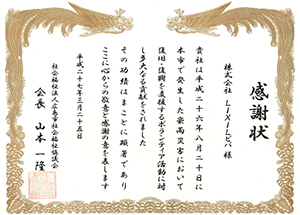 感謝状
株式会社 LIXILビバ 様
貴社は平成二十六年八月二十日に
本市で発生した豪雨災害において
復旧・復興を支援するボランティア活動に対
し多大なる貢献をされました
その功績はまことに顕著であり
ここに心からの敬意と感謝の意を表します
平成二十七年三月二十五日
社会福祉法人広島市社会福祉協議会
会長 山本一隆